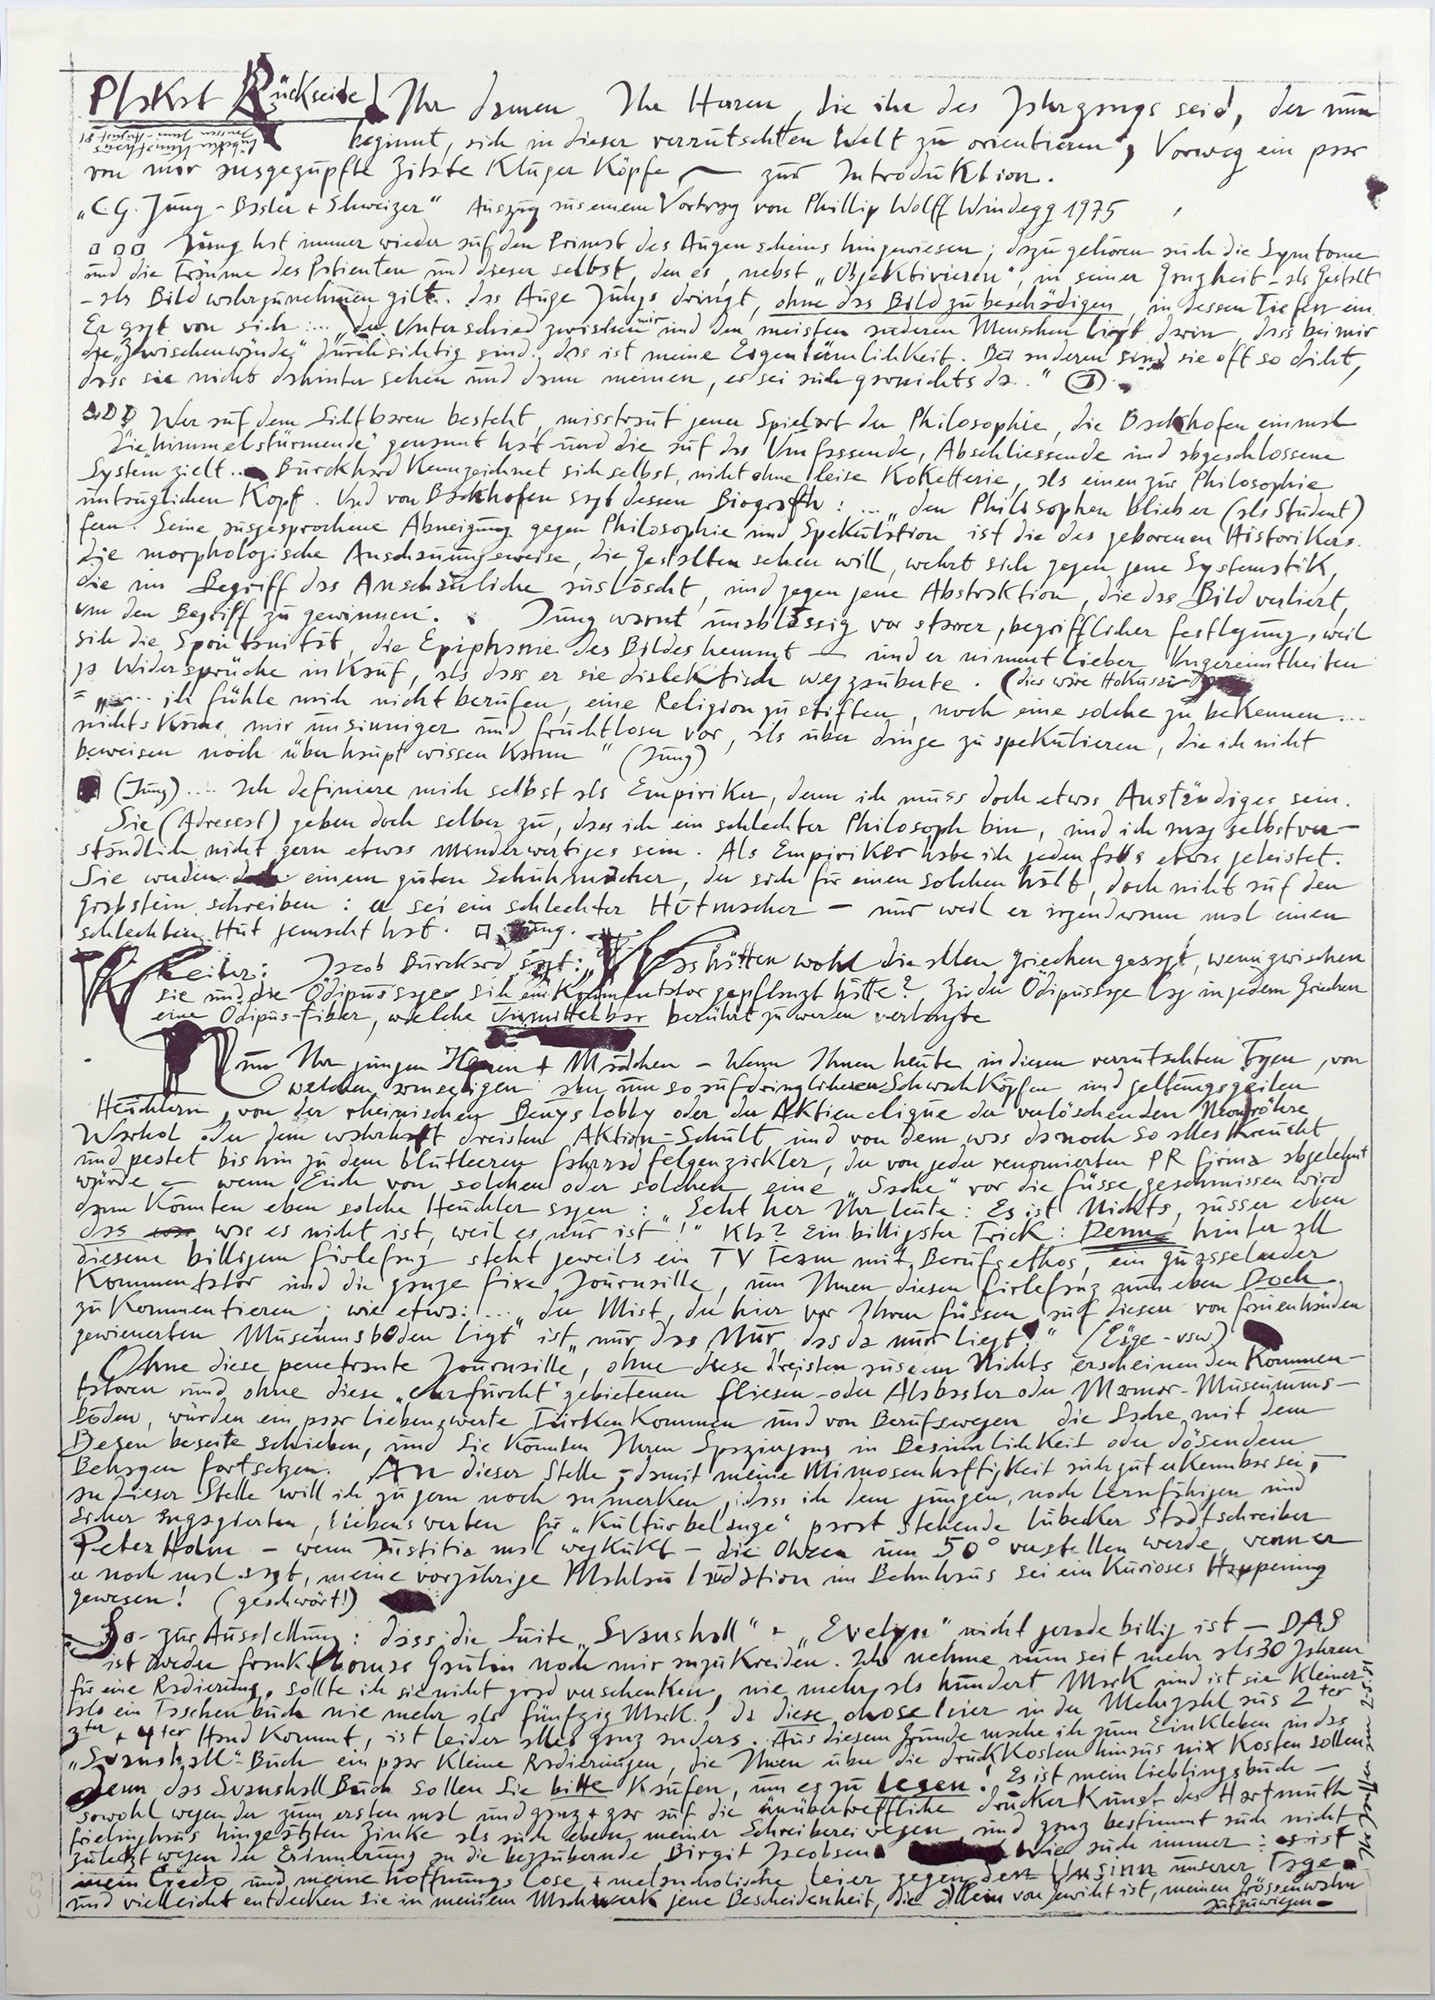 Plakat Rückseide! Ihr damen Ihr Herren, die ihr des Jahrgangs seid, der nun
Lübecker Kunsthaus
Janssen Juni - August 81
beginnt, sich in dieser verrutschten Welt zu orientieren, Vorweg ein paar
von mir ausgezupfte Zitate Kluger Köpfe — zur Introduktion.
"C.G. Jung - Basler + Schweizer" Auszug aus einem Vortrag von Phillip Wolff Windegg 1975
Jung hat immer wieder auf den Primat des Augenscheins hingewiesen; dazu gehören auch die Symtome
und die Träume des Patienten und dieser selbst, den es, nebst "Objektivieren", in seiner Ganzheit - als Gestalt
- als Bild wahrzunehmen gilt. das Auge Jungs dringt, ohne das Bild zu beschädigen, in dessen Tiefen ein.
Er sagt von sich: ... "der Unterschied zwischen mir und den meisten anderen Menschen liegt darin, dass bei mir
die "Zwischenwände" durchsichtig sind. das ist meine Eigentümlichkeit. Bei anderen sind sie oft so dicht,
dass sie nichts dahinter sehen und dann meinen, es sei auch garnichts da.." (J).
Wer auf dem Sichtbaren besteht, misstraut jener Spielart der Philosophie, die Bachhofen einmal
"die himmelstürmende" genannt hat und die auf das Umfassende, Abschliessende und abgeschlossene
System zielt... Burckhard Kennzeichnet sich selbst, nicht ohne leise Koketterie, als einen zur Philosophie
untauglichen Kopf. Und von Bachhofen sagt dessen Biograph: ... "den Philosophen blieb er (als Student)
fern. Seine ausgesprochene Abneigung gegen Philosophie und Spekulation ist die des geborenen Historikers.
die morphologische Anschauungsweise, die Gestalten sehen will, wehrt sich gegen jene Systematik,
die im Begriff das Anschauliche auslöscht, und gegen jene Abstraktion, die das Bild verliert,
um den Begriff zu gewinnen. Jung warnt unablässig vor starrer, begrifflicher festlegung, weil
sich die Spontanität, die Epiphanie des Bildes hemmt — und er nimmt lieber Ungereimtheiten
ja Widersprüche in Kauf, als dass er sie dialektisch wegzauberte. (dies wäre Hokuss
= "... ich fühle mich nicht berufen, eine Religion zu stiften, noch eine solche zu bekennen...
nichts Käme mir unsinniger und fruchtloser vor, als über dinge zu spekulieren, die ich nicht
beweisen noch überhaupt wissen Kann" (Jung)
(Jung).... Ich definiere mich selbst als Empiriker, denn ich muss doch etwas Anständiges sein.
Sie (Adressat) geben doch selber zu, dass ich ein schlechter Philosoph bin, und ich mag selbstver-
ständlich nicht gern etwas minderwertiges sein. Als Empiriker habe ich jedenfalls etwas geleistet.
Sie werden einem guten Schuhmacher, der sich für einen solchen hält, doch nicht auf den
Grabstein schreiben: er sei ein schlechter Hutmacher — nur weil er irgendwann mal einen
schlechten Hut gemacht hat. Jung.
Weiter: Jacob Burckard sagt: "Was hätten wohl die alten Griechen gesagt, wenn zwischen
sie und die Ödipussage sich ein Kommentator gepflanzt hätte? Zu der Ödipussage lag in jedem Griechen
eine Ödipus-Fiber, welche unmittelbar berührt zu werden verlangte
Nun Ihr jungen Herren + Mädchen - Wenn Ihnen heute in diesen verrutschten Tagen, von
welchen armseligen aber um so aufdringlicheren Schwachköpfen und geltungsgeilen
Heuchlern, von der rheinischen Beuyslobby oder der Aktienclique der verlöschenden Neonröhre
Warhol oder dem wahrhaft dreisten Aktion-Schult und von dem was da noch so alles kreucht
und pestet bis hin zu dem blutleeren fahrradfelgenzirkler, der von jeder renomierten PR firma abgelehnt
würde - wenn Euch von solchen oder solchen eine "Sache" vor die füsse geschmissen wird
dann Könnten eben solche Heuchler sagen: "Seht her Ihr leute: Es ist Nichts, ausser eben
das was es nicht ist, weil es nur ist"!" Kla? Ein billigster Trick: Denn hinter all
diesem billigem firlefanz steht jeweils ein TV Team mit Berufsethos, ein quasselnder
Kommentator und die ganze fixe Journaille, um Ihnen diesen firlefanz nun eben Doch
zu Kommentieren; wie etwa: ... "der Mist, der hier vor Ihren füssen auf diesen von frauenhänden
gewienerten Museumsboden ligt ist "nur das Nur das da nur liegt!" (Säge - usw)
Ohne diese penetrante Journaille, ohne diese dreisten aus em Nichts erscheinenden Kommen-
tatoren und ohne diese "ehrfurcht" gebietenen fliesen- oder Alabaster oder Marmor-Museums-
böden, würden ein paar liebenswerte Türken Kommen und von Berufswegen die Sache mit dem
Besen beseite schieben, und Sie Könnten Ihren Spaziergang in Besinnlichkeit oder dösendem
Behagen fortsetzen. An dieser Stelle, damit meine Mimosenhaftigkeit auch gut erkennbar sei,
an dieser Stelle will ich zu gern noch anmerken, dass ich dem jungen, noch lernfähigen und
sicher engagierten, liebenswerten für "Kulturbelange" parat stehende Lübecker Stadtschreiber
Peter Holm - wenn Justitia mal wegkukt - die Ohren um 50° verstellen werde, wenn er
er noch mal sagt, meine vorjährige Mahlau laudation im Behnhaus sei ein Kurioses Happening
gewesen! (geschwört!)
So- zur Ausstellung: dass die Suite "Svanshall" + "Evelyn" nicht gerade billig ist — DAS
ist weder frank thomas Gaulin noch mir anzukreiden. Ich nehme nun seit mehr als 30 Jahren
für eine Radierung, sollte ich sie nicht grad verschenken, nie mehr als hundert Mark und ist sie Kleiner
als ein Taschenbuch nie mehr als fünfzig Mark. da diese chose hier in der Mehrzahl aus 2ter
3ter + 4ter Hand Kommt, ist leider alles ganz anders. Aus diesem Grunde mache ich zum Einkleben in das
"Svanshall"-Buch ein paar Kleine Radierungen, die Ihnen über die druckkosten hinaus nix Kosten sollen
denn das Svanshall Buch sollen Sie bitte Kaufen, um es zu lesen! Es ist mein lieblingsbuch -
sowohl wegen der zum ersten mal und ganz + gar auf die unübertreffliche drucker Kunst des Hartmuth
frielinghaus hingeätzten Zinke als auch eben meiner Schreiberei wegen und ganz bestimmt auch nicht
zuletzt wegen der Erinnerung an die bezaubernde Birgit Jacobsen. Wie auch immer: es ist
mein Credo und meine hoffnungslose + melancholische leier gegen den Unsinn unserer Tage.
und vielleicht entdecken Sie in meinem Machwerk jene Bescheidenheit, die allein von Gewicht ist, meinen Grössenwahn
aufzuwiegen.